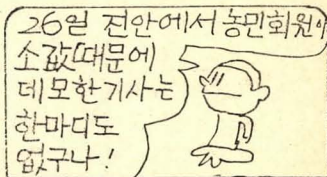 26일 진안에서 농민회원이
소값때문에
데모한기사는
한마디도
없구나!